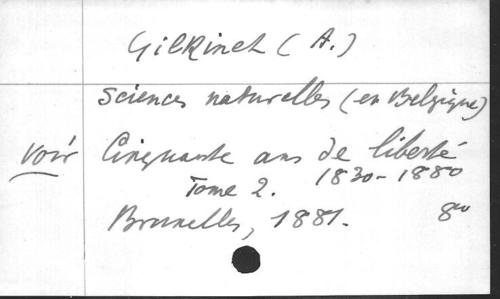 Gilkinet (A.)
Sciences naturelles (en Belgique)
voir Cinquante ans de liberté
Tome 2. 1830-1880
Bruxelles, 1881. 8º